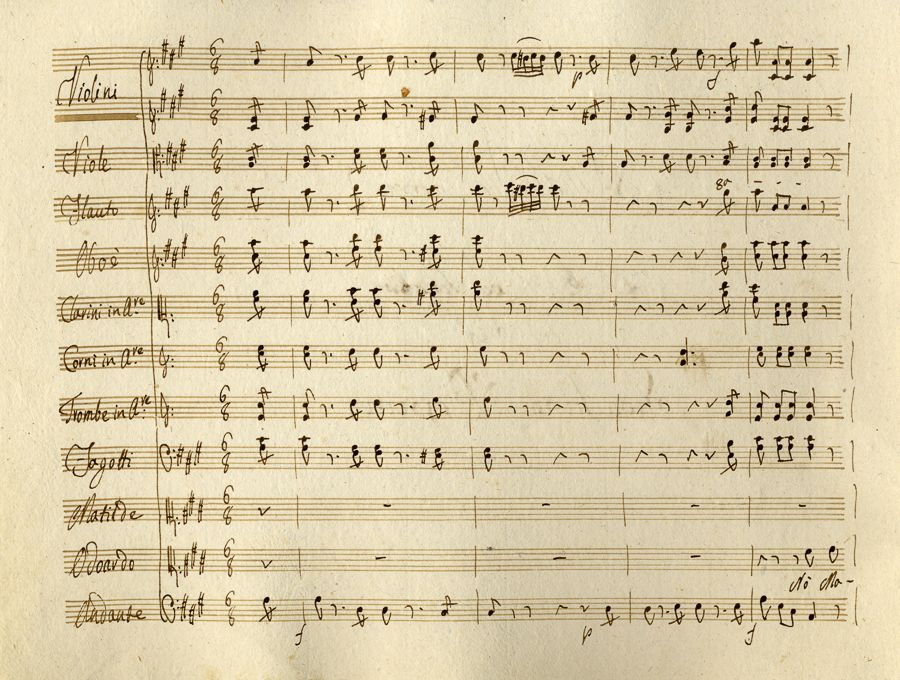 Violini
Viole
Flauto
8ª
Oboè
Clarini in A.re
Corni in A.re
Trombe in A.re
Fagotti
Matilde
Odoardo
Nò Ma-
Andante
f
p
f
p
f